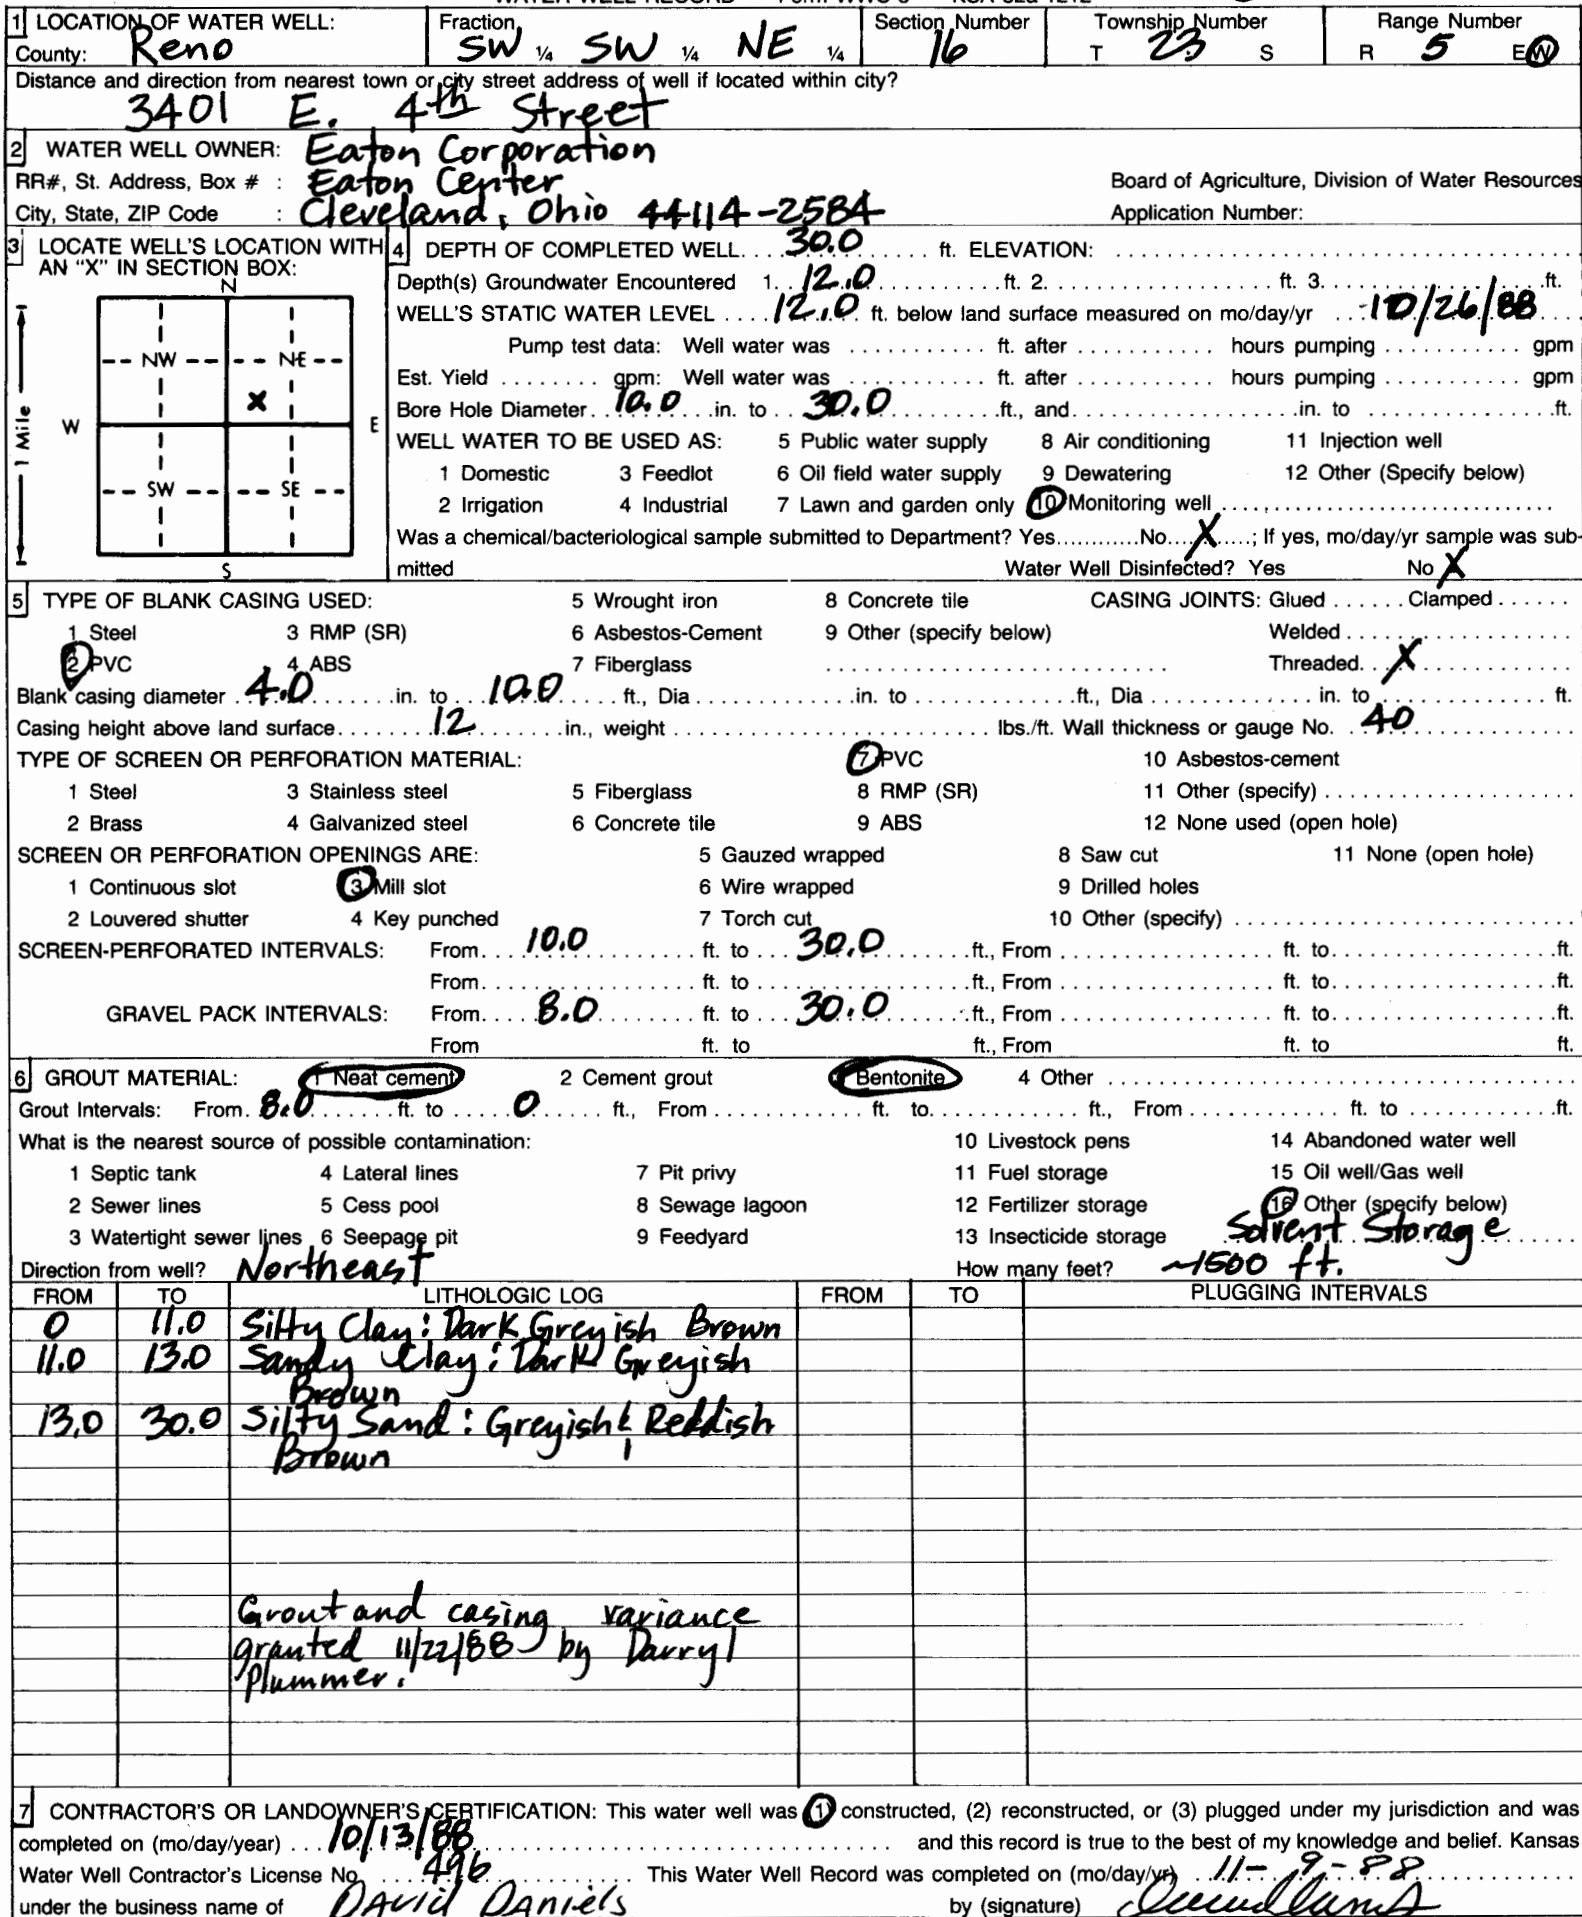 WATER WELL RECORD Form WWC-5 KSA 82a-1212
1 LOCATION OF WATER WELL: Fraction Section Number Township Number Range Number
County: Reno SW 1/4 SW 1/4 NE 1/4 16 T 23 S R 5 E W
Distance and direction from nearest town or city street address of well if located within city?
3401 E. 4th Street
2 WATER WELL OWNER: Eaton Corporation
RR#, St. Address, Box # : Eaton Center Board of Agriculture, Division of Water Resources
City, State, ZIP Code : Cleveland, Ohio 44114-2584 Application Number:
3 LOCATE WELL'S LOCATION WITH AN "X" IN SECTION BOX:
N
NW NE
X
W E
1 Mile
SW SE
S
4 DEPTH OF COMPLETED WELL.... 30.0 ft. ELEVATION:
Depth(s) Groundwater Encountered 1. 12.0 ft. 2. ft. 3. ft.
WELL'S STATIC WATER LEVEL .... 12.0 ft. below land surface measured on mo/day/yr 10/26/88
Pump test data: Well water was .......... ft. after .......... hours pumping .......... gpm
Est. Yield ........ gpm: Well water was .......... ft. after .......... hours pumping .......... gpm
Bore Hole Diameter.. 10.0 in. to 30.0 ft., and in. to ft.
WELL WATER TO BE USED AS: 5 Public water supply 8 Air conditioning 11 Injection well
1 Domestic 3 Feedlot 6 Oil field water supply 9 Dewatering 12 Other (Specify below)
2 Irrigation 4 Industrial 7 Lawn and garden only 10 Monitoring well
Was a chemical/bacteriological sample submitted to Department? Yes...........No.... X ....; If yes, mo/day/yr sample was sub-
mitted Water Well Disinfected? Yes No X
5 TYPE OF BLANK CASING USED: 5 Wrought iron 8 Concrete tile CASING JOINTS: Glued ...... Clamped ......
1 Steel 3 RMP (SR) 6 Asbestos-Cement 9 Other (specify below) Welded
2 PVC 4 ABS 7 Fiberglass Threaded... X
Blank casing diameter 4.0 in. to 10.0 ft., Dia in. to ft., Dia in. to ft.
Casing height above land surface 12 in., weight lbs./ft. Wall thickness or gauge No. 40
TYPE OF SCREEN OR PERFORATION MATERIAL: 7 PVC 10 Asbestos-cement
1 Steel 3 Stainless steel 5 Fiberglass 8 RMP (SR) 11 Other (specify)
2 Brass 4 Galvanized steel 6 Concrete tile 9 ABS 12 None used (open hole)
SCREEN OR PERFORATION OPENINGS ARE: 5 Gauzed wrapped 8 Saw cut 11 None (open hole)
1 Continuous slot 3 Mill slot 6 Wire wrapped 9 Drilled holes
2 Louvered shutter 4 Key punched 7 Torch cut 10 Other (specify)
SCREEN-PERFORATED INTERVALS: From 10.0 ft. to 30.0 ft., From ft. to ft.
From ft. to ft., From ft. to ft.
GRAVEL PACK INTERVALS: From 8.0 ft. to 30.0 ft., From ft. to ft.
From ft. to ft., From ft. to ft.
6 GROUT MATERIAL: 1 Neat cement 2 Cement grout Bentonite 4 Other
Grout Intervals: From 8.0 ft. to 0 ft., From ft. to ft., From ft. to ft.
What is the nearest source of possible contamination: 10 Livestock pens 14 Abandoned water well
1 Septic tank 4 Lateral lines 7 Pit privy 11 Fuel storage 15 Oil well/Gas well
2 Sewer lines 5 Cess pool 8 Sewage lagoon 12 Fertilizer storage 16 Other (specify below)
3 Watertight sewer lines 6 Seepage pit 9 Feedyard 13 Insecticide storage Solvent Storage
Direction from well? Northeast How many feet? ~1500 ft.
FROM TO LITHOLOGIC LOG FROM TO PLUGGING INTERVALS
0 11.0 Silty Clay: Dark Greyish Brown
11.0 13.0 Sandy Clay: Dark Greyish
Brown
13.0 30.0 Silty Sand: Greyish & Reddish
Brown
Grout and casing variance
granted 11/22/88 by Darryl
Plummer.
7 CONTRACTOR'S OR LANDOWNER'S CERTIFICATION: This water well was (1) constructed, (2) reconstructed, or (3) plugged under my jurisdiction and was
completed on (mo/day/year) 10/13/88 and this record is true to the best of my knowledge and belief. Kansas
Water Well Contractor's License No. 496 This Water Well Record was completed on (mo/day/yr) 11-9-88
under the business name of David Daniels by (signature)